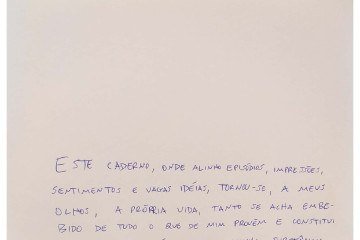 ESTE CADERNO, ONDE ALINHO EPISÓDIOS, IMPRESSÕES,
SENTIMENTOS E VAGAS IDEIAS, TORNOU-SE, A MEUS
OLHOS, A PRÓPRIA VIDA, TANTO SE ACHA EMBE-
BIDO DE TUDO O QUE DE MIM PROVÉM E CONSTITUI